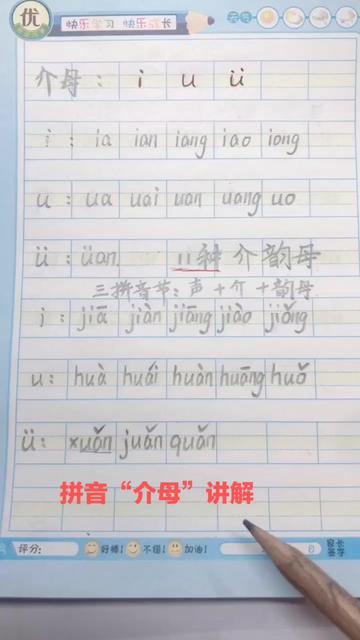 优 快乐学习 快乐成长 天气
介母: i u ü
i: ia ian iang iao iong
u: ua uai uan uang uo
ü: üan 11种 介韵母
三拼音节: 声+介+韵母
i: jiā jiàn jiāng jiào jiǒng
u: huà huái huàn huāng huǒ
ü: xuǎn juǎn quǎn
拼音“介母”讲解
评分: 好棒! 不错! 加油! 家长签字